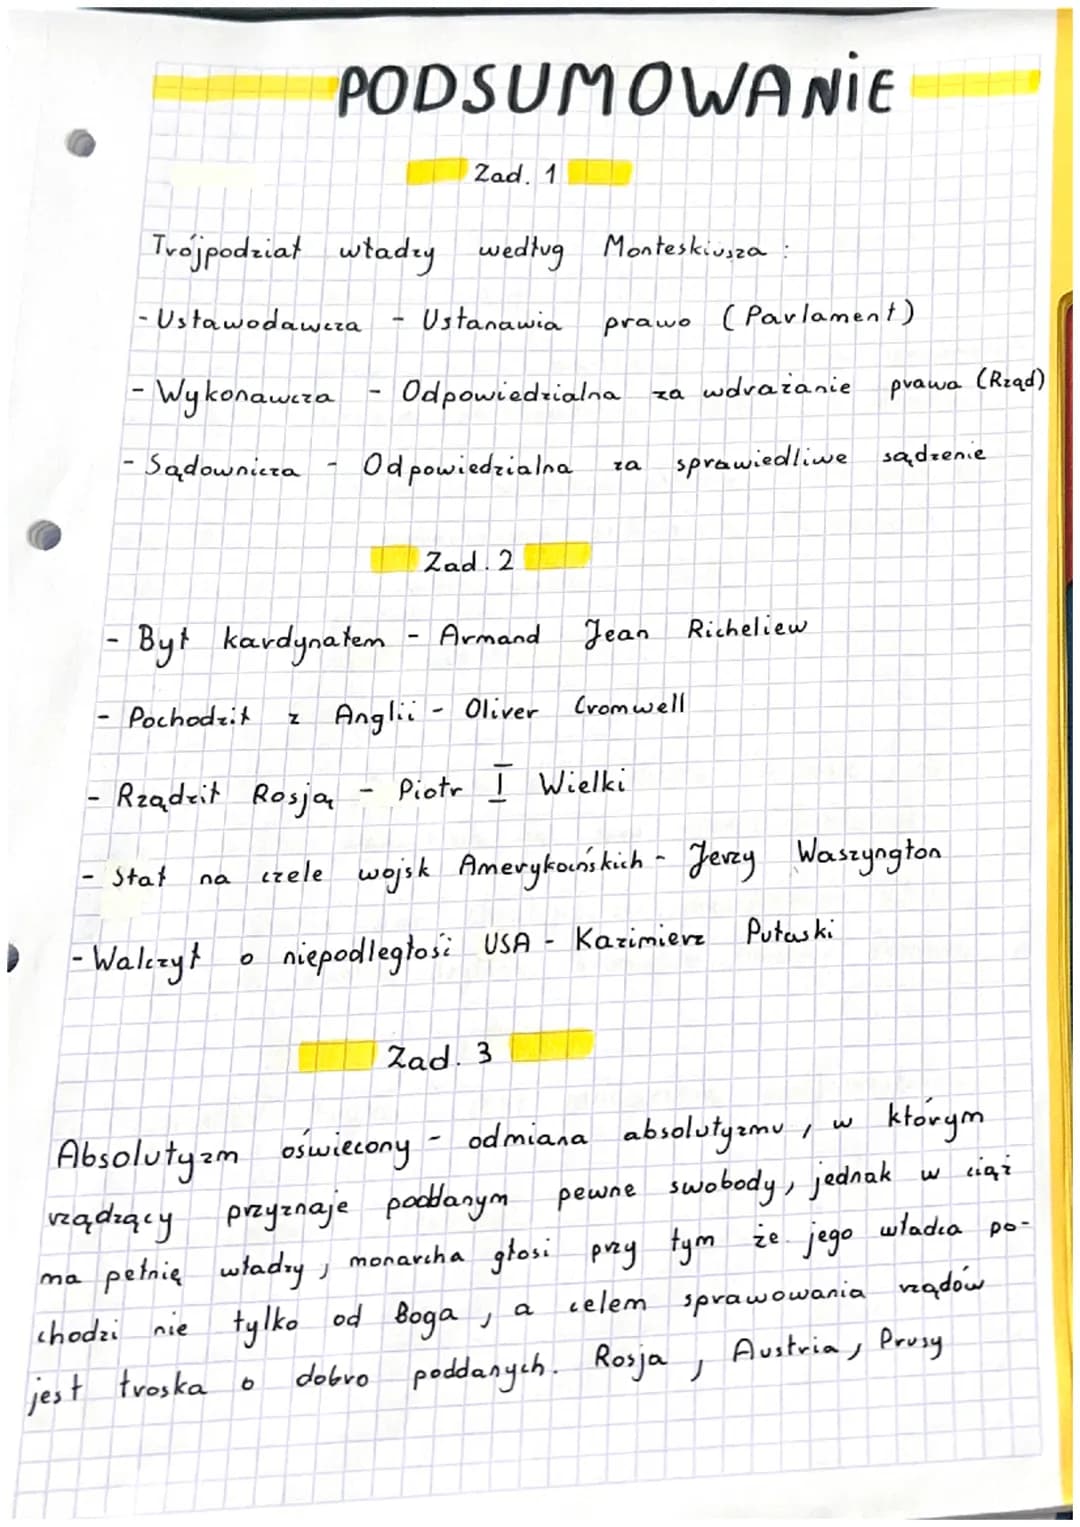 PODSUMOWANiE
Zad. 1
Trójpodział władzy według Monteskiusza :
- Ustawodawcza - Ustanawia prawo (Parlament)
- Wykonawcza - Odpowiedzialna za wdrażanie prawa (Rząd)
- Sądownicza - Odpowiedzialna za sprawiedliwe sądzenie
Zad. 2
- Był kardynałem - Armand Jean Richeliew
- Pochodził z Anglii - Oliver Cromwell
- Rządził Rosją - Piotr I Wielki
- Stał na czele wojsk Amerykańskich - Jerzy Waszyngton
- Walczył o niepodległość USA - Kazimierz Pułaski
Zad. 3
Absolutyzm oświecony - odmiana absolutyzmu, w którym
rządzący przyznaje poddanym pewne swobody, jednak w ciąż
ma pełnię władzy, monarcha głosi przy tym że jego władca po-
chodzi nie tylko od Boga, a celem sprawowania rządów
jest troska o dobro poddanych. Rosja, Austria, Prusy